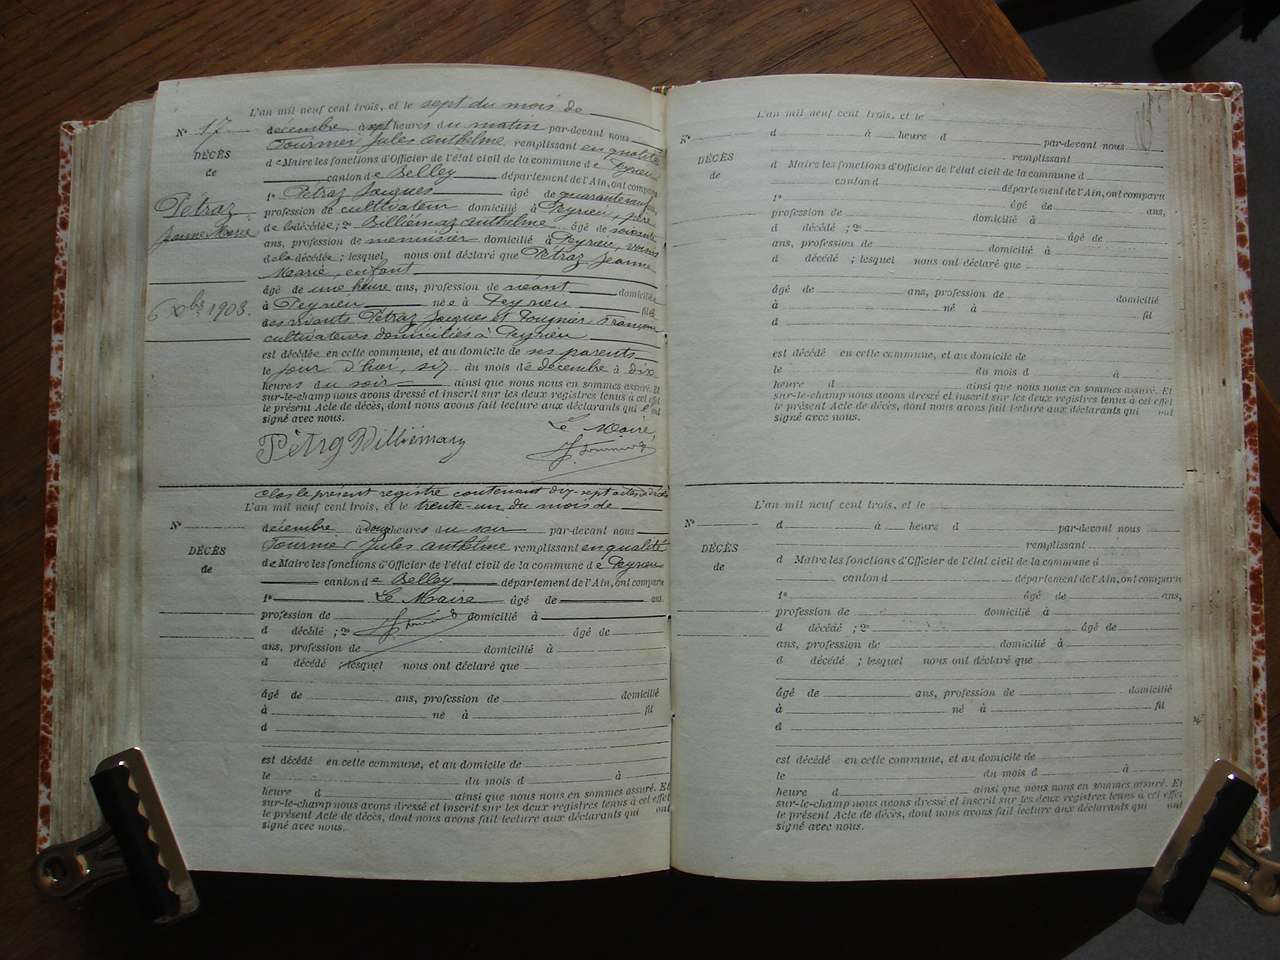 L'an mil neuf cent trois, et le sept du mois de
N° 17
decembre à sept heures du matin par-devant nous
Fournier Jules Anthelme remplissant en qualité
DÉCÈS
de Maire les fonctions d'Officier de l'état civil de la commune de Peyrieu
de
canton de Belley département de l'Ain, ont comparu
1° Pétraz Jacques âgé de quarante neuf
Pétraz
profession de cultivateur domicilié à Peyrieu, père
Jeanne Marie
de la décédée; 2° Billiémaz Anthelme âgé de soixante
ans, profession de menuisier domicilié à Peyrieu, voisin
de la décédée; lesquels nous ont déclaré que Pétraz Jeanne
Marie, enfant
âgé de une heure ans, profession de néant domicilié
6 Xbre 1903.
à Peyrieu née à Peyrieu fille
des vivants Pétraz Jacques et
cultivateurs domiciliés à Peyrieu
est décédée en cette commune, et au domicile de ses parents
le jour d'hier, six du mois de décembre à dix
heures du soir ainsi que nous nous en sommes assuré. Et
sur-le-champ nous avons dressé et inscrit sur les deux registres tenus à cet effet
le présent Acte de décès, dont nous avons fait lecture aux déclarants qui ont
signé avec nous.
Le Maire,
Billiémaz
Clos le présent registre contenant dix-sept actes de décès
L'an mil neuf cent trois, et le trente-un du mois de
N°
décembre à douze heures du soir par-devant nous
Fournier Jules Anthelme remplissant en qualité
DÉCÈS
de Maire les fonctions d'Officier de l'état civil de la commune de Peyrieu
de
canton de Belley département de l'Ain, ont comparu
1° Le Maire âgé de ans,
profession de domicilié à
d décédé ; 2° âgé de
ans, profession de domicilié à
d décédé ; lesquel nous ont déclaré que
âgé de ans, profession de domicilié
à né à fil
d
est décédé en cette commune, et au domicile de
le du mois d à
heure d ainsi que nous nous en sommes assuré. Et
sur-le-champ nous avons dressé et inscrit sur les deux registres tenus à cet effet
le présent Acte de décès, dont nous avons fait lecture aux déclarants qui ont
signé avec nous.
L'an mil neuf cent trois, et le
N°
d à heure d par-devant nous
remplissant
DÉCÈS
d Maire les fonctions d'Officier de l'état civil de la commune d
de
canton d département de l'Ain, ont comparu
1° âgé de ans,
profession de domicilié à
d décédé ; 2° âgé de
ans, profession de domicilié à
d décédé ; lesquel nous ont déclaré que
âgé de ans, profession de domicilié
à né à fil
d
est décédé en cette commune, et au domicile de
le du mois d à
heure d ainsi que nous nous en sommes assuré. Et
sur-le-champ nous avons dressé et inscrit sur les deux registres tenus à cet effet
le présent Acte de décès, dont nous avons fait lecture aux déclarants qui ont
signé avec nous.
L'an mil neuf cent trois, et le
N°
d à heure d par-devant nous
remplissant
DÉCÈS
d Maire les fonctions d'Officier de l'état civil de la commune d
de
canton d département de l'Ain, ont comparu
1° âgé de ans,
profession de domicilié à
d décédé ; 2° âgé de
ans, profession de domicilié à
d décédé ; lesquel nous ont déclaré que
âgé de ans, profession de domicilié
à né à fil
d
est décédé en cette commune, et au domicile de
le du mois d à
heure d ainsi que nous nous en sommes assuré. Et
sur-le-champ nous avons dressé et inscrit sur les deux registres tenus à cet effet
le présent Acte de décès, dont nous avons fait lecture aux déclarants qui ont
signé avec nous.